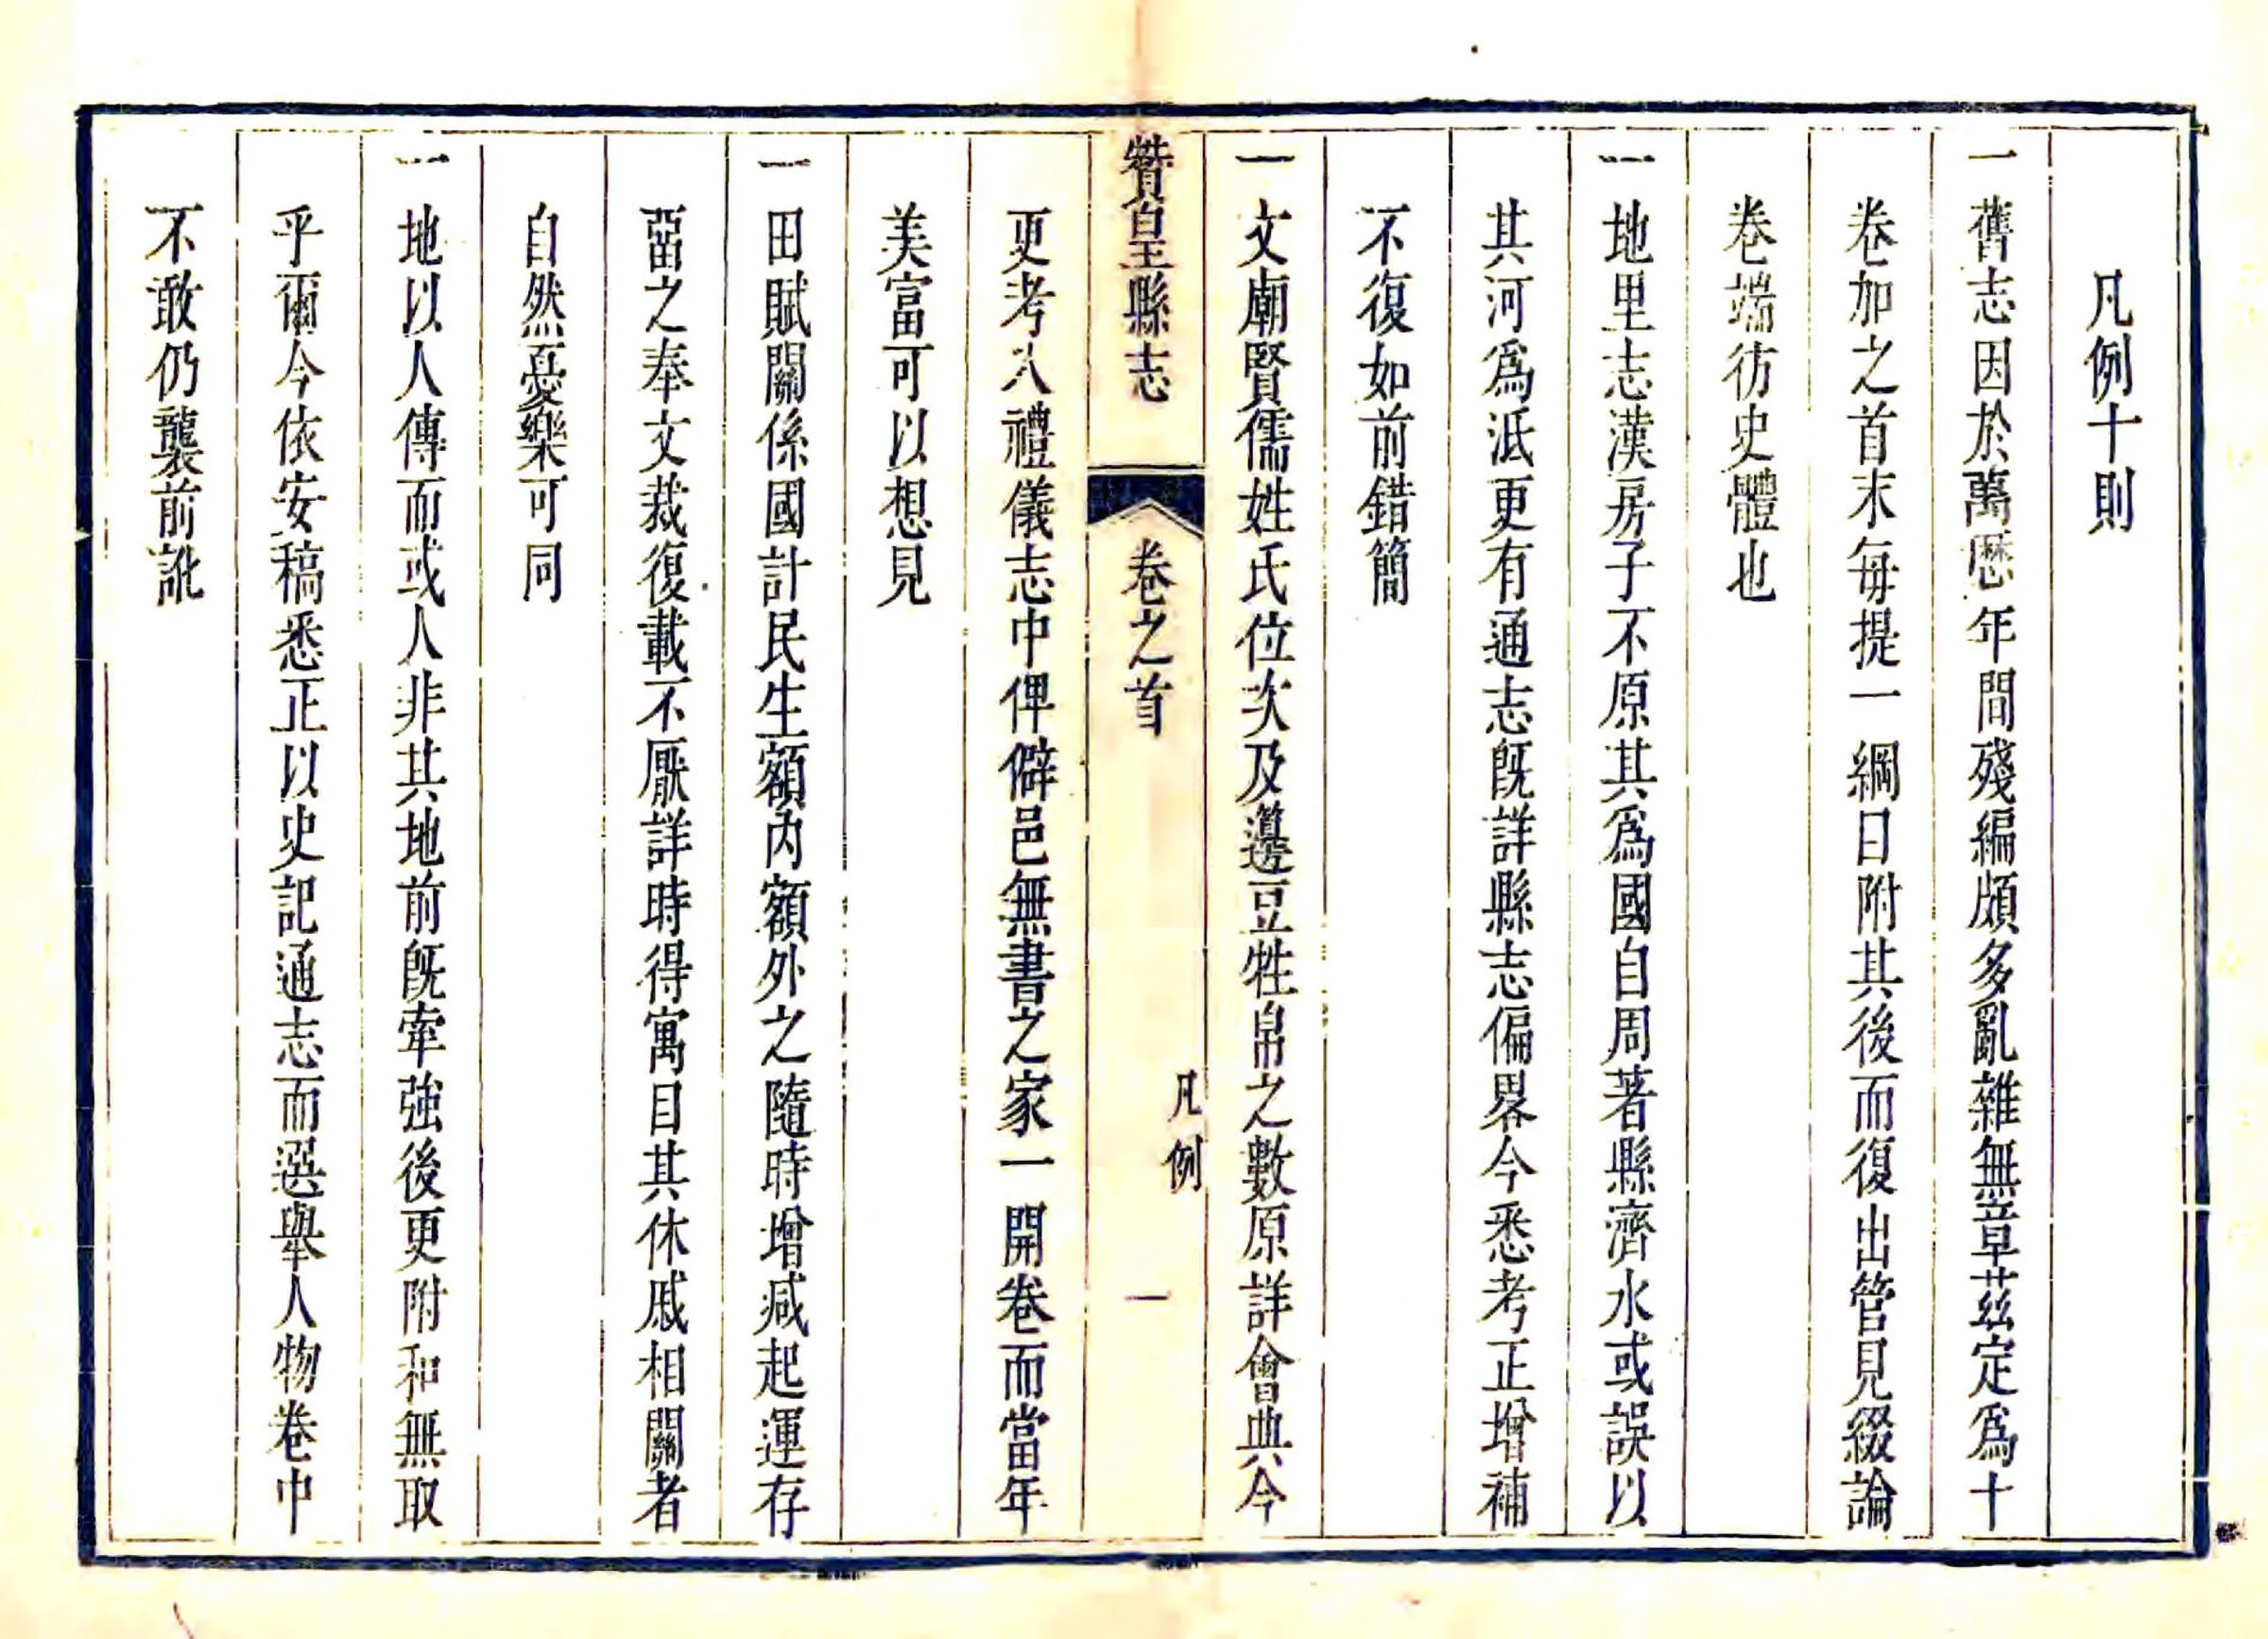 凡例十則
一舊志因於萬歴年間殘編頗多亂雜無章茲定爲十
卷加之首末每提一綱目附其後而復出管見綴論
卷端彷史體也
一地里志漢房子不原其爲國自周著縣濟水或誤以
其河爲泜更有通志旣詳縣志偏畧今悉考正增補
不復如前錯簡
一文廟賢儒姓氏位次及籩豆牲帛之數原詳會典今
贊皇縣志
卷之首
凡例
一
更考入禮儀志中俾僻邑無書之家一開卷而當年
美富可以想見
一田賦關係國計民生額內額外之隨時增减起運存
畱之奉文裁復載不厭詳時得寓目其休戚相關者
自然憂樂可同
一地以人傳而或人非其地前旣牽強後更附和無取
乎爾今依安稿悉正以史記通志而選舉人物卷中
不敢仍襲前訛